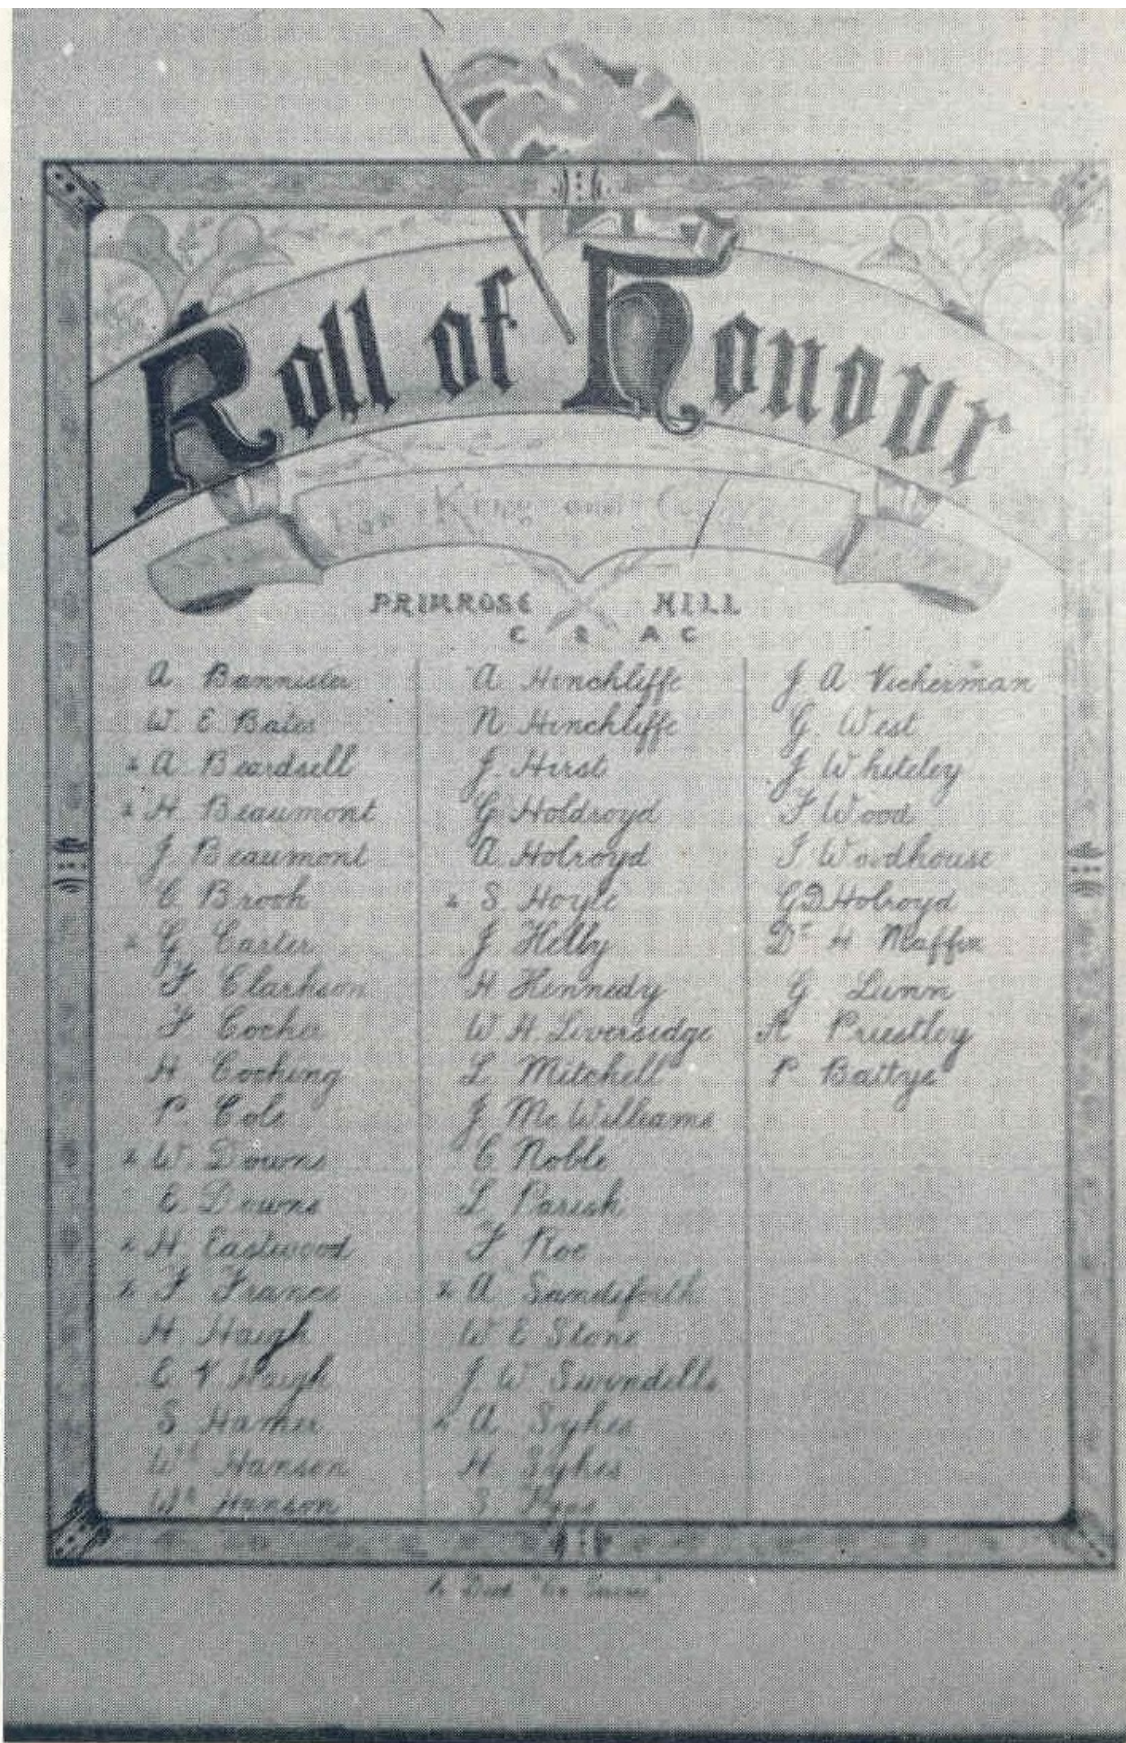 Roll of Honour
For King and
PRIMROSE HILL
C & A C
A Bannister
W. E. Bates
x A Beardsell
x H Beaumont
J. Beaumont
C Brook
x G Carter
F Clarkson
F Cocker
H Cocking
P. Cole
x W. Downs
E Downs
x H Eastwood
x F France
H Haigh
E V Haigh
S Hamer
Hanson
Hanson
A Hinchliffe
N Hinchliffe
J. Hirst
G Holdroyd
A. Holroyd
x S. Hoyle
J. Helby
H Kennedy
W. H. Liversidge
L Mitchell
J. Mc Williams
C Noble
L Parish
F Roe
x A Sandiforth
W E Stone
J. W Swindells
x A Sykes
H Sykes
S
J A Vickerman
G. West
J Whiteley
F Wood
J Woodhouse
G D Holroyd
Dr H Maffin
G Lunn
A Priestley
P. Battye
x Died "On Service"